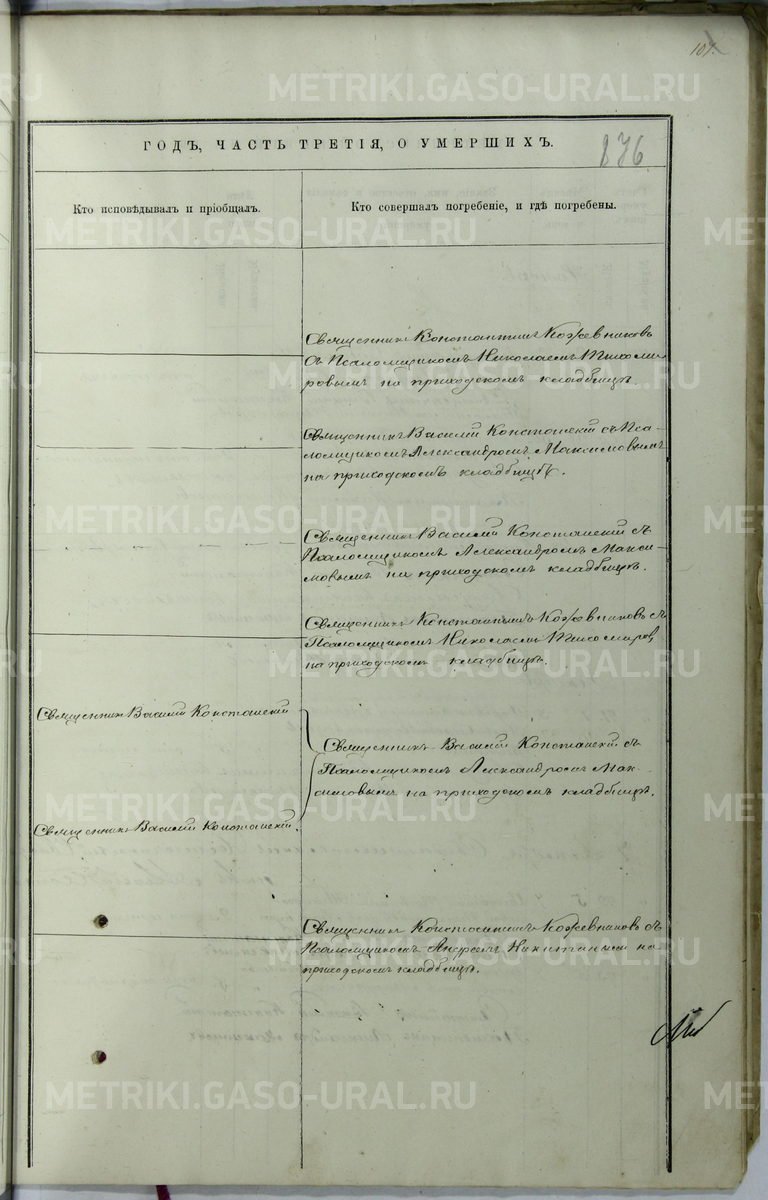 107.
ГОДЪ, ЧАСТЬ ТРЕТІЯ, О УМЕРШИХЪ.
876
Кто исповѣдывалъ и пріобщалъ.
Кто совершалъ погребеніе, и гдѣ погребены.
Священникъ Константинъ Кожевниковъ
съ Псаломщикомъ Николаемъ Тихоми-
ровымъ на приходскомъ кладбищѣ.
Священникъ Василій Конотошскій съ Пса-
ломщикомъ Александромъ Максимовымъ
на приходскомъ кладбищѣ.
Священникъ Василій съ
Псаломщикомъ Александромъ Макси-
мовымъ на приходскомъ кладбищѣ.
Священникъ Константинъ Кожевниковъ съ
Псаломщикомъ Николаемъ Тихомиров,
на приходскомъ кладбищѣ.
Священникъ Василій
Священникъ Василій съ
Псаломщикомъ Александромъ Мак-
симовымъ на приходскомъ кладбищѣ.
Священникъ Василій
Священникъ Константинъ Кожевниковъ съ
Псаломщикомъ Андреемъ Никитинымъ на
приходскомъ кладбищѣ.
METRIKI.GASO-URAL.RU